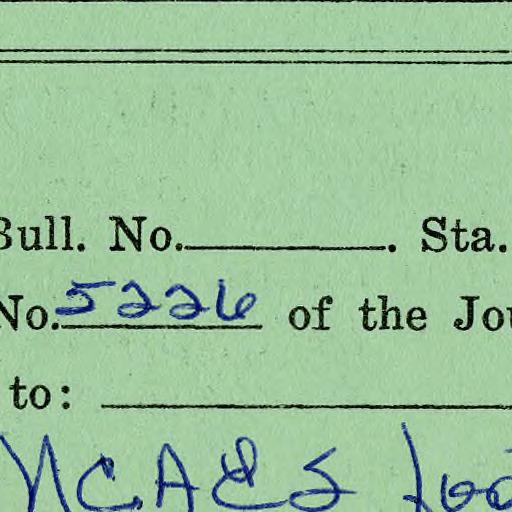 Bull. No.__________. Sta.
No. 5226 of the Jou
to: __________
NCAES